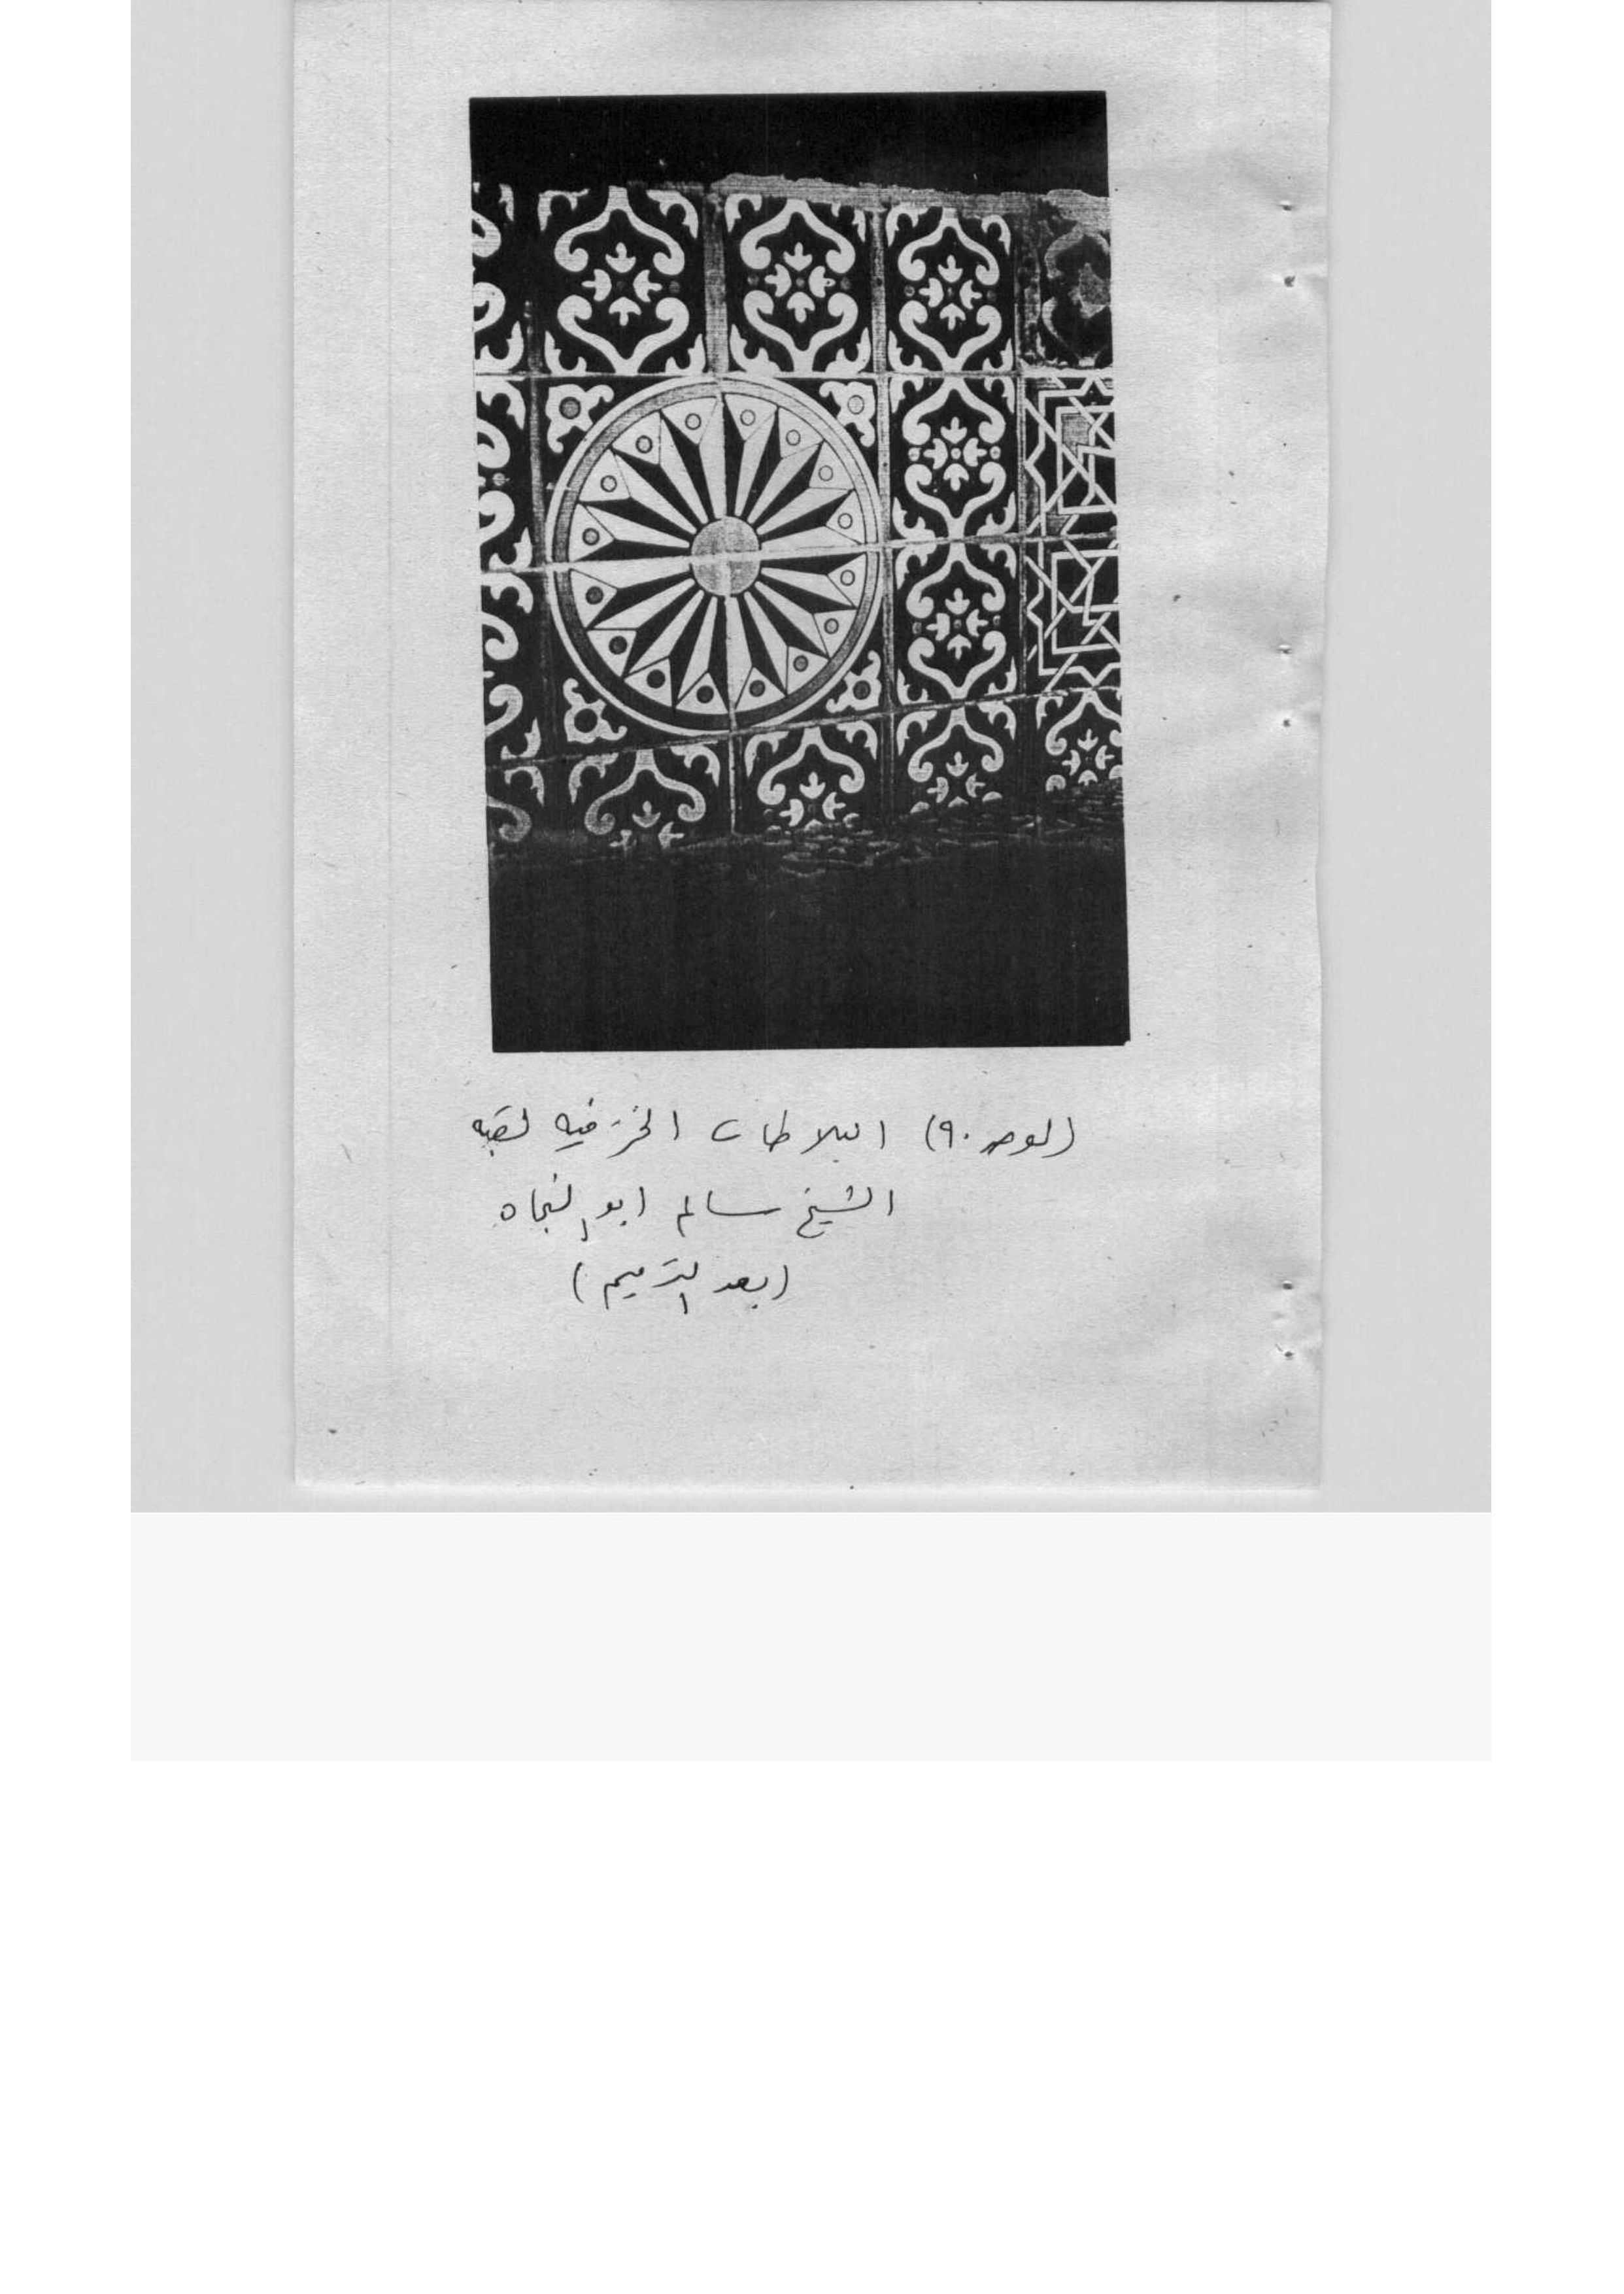 (لوحه ٩٠) البلاطات الخزفيه لقبه
الشيخ سالم ابو النجاه
(بعد الترميم)